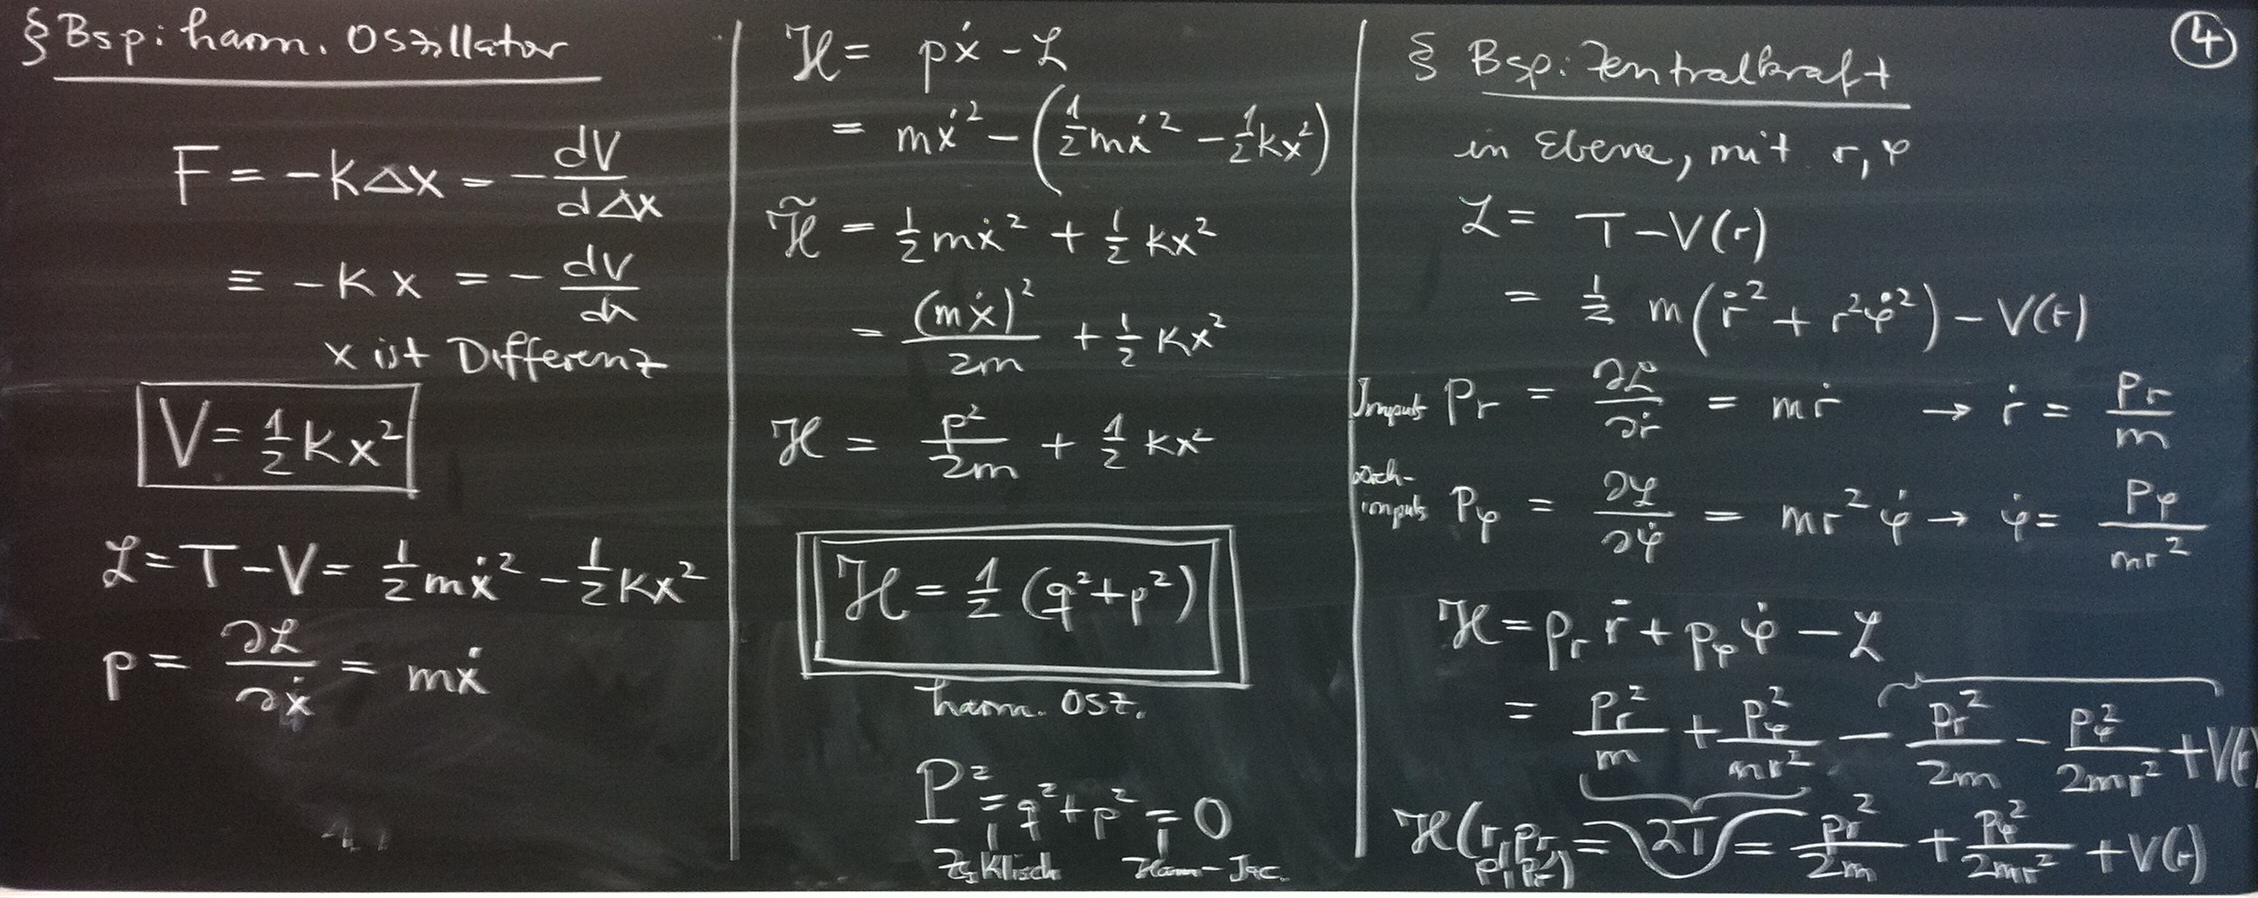 § Bsp: harm. Oszillator
F = -k Δx = - dV/dΔx
≡ -k x = - dV/dx
x ist Differenz
V = 1/2 k x²
ℒ = T - V = 1/2 m ẋ² - 1/2 k x²
p = ∂ℒ/∂ẋ = m ẋ
ℋ = p ẋ - ℒ
= m ẋ² - (1/2 m ẋ² - 1/2 k x²)
ℋ̃ = 1/2 m ẋ² + 1/2 k x²
= (m ẋ)²/2m + 1/2 k x²
ℋ = p²/2m + 1/2 k x²
ℋ = 1/2 (q² + p²)
harm. Osz.
P² = q² + p² = 0
zyklisch Ham-Jac.
④
§ Bsp: Zentralkraft
in Ebene, mit r, φ
ℒ = T - V(r)
= 1/2 m (ṙ² + r² φ̇²) - V(r)
Impuls p_r = ∂ℒ/∂ṙ = m ṙ → ṙ = p_r/m
impuls p_φ = ∂ℒ/∂φ̇ = m r² φ̇ → φ̇ = p_φ/mr²
ℋ = p_r ṙ + p_φ φ̇ - ℒ
= p_r²/m + p_φ²/mr² - p_r²/2m - p_φ²/2mr² + V(r)
2T = p_r²/2m + p_φ²/2mr² + V(r)